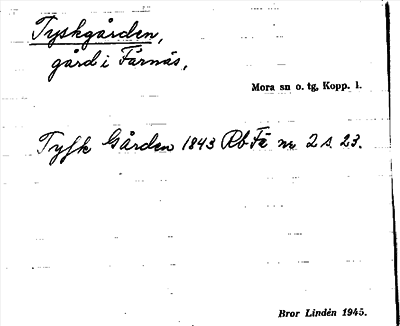 Tyskgården,
gård i Färnäs,
Mora sn o. tg, Kopp. l.
Tyſk Gården 1843 Rb Fä nr 2 s. 23.
Bror Lindén 1945.